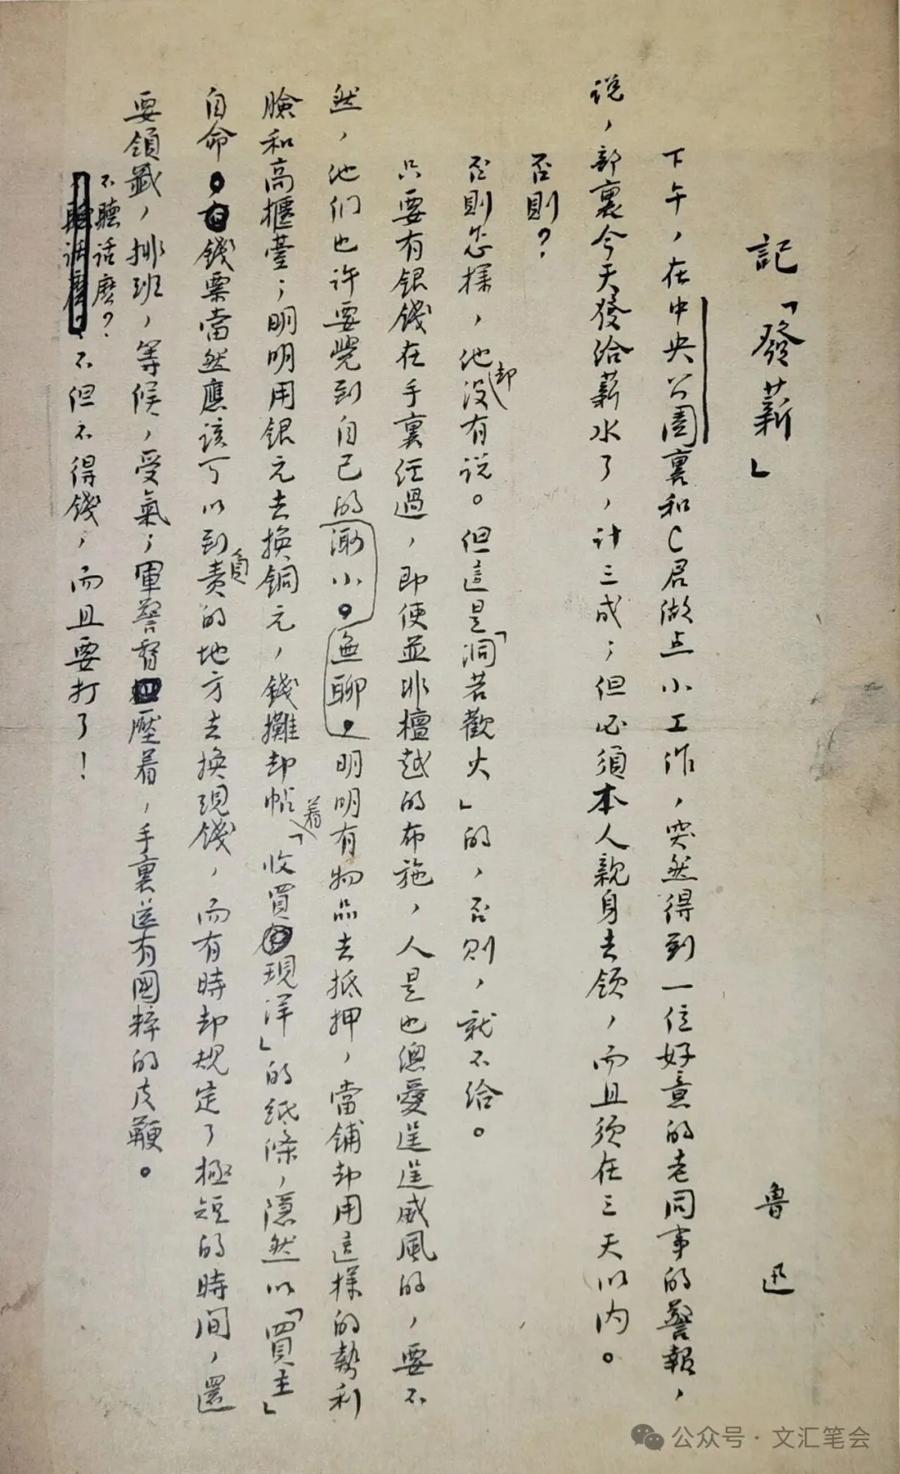 記「發薪」
魯迅
下午，在中央公園裏和C君做点小工作，突然得到一位好意的老同事的警報，
说，部裏今天發给薪水了，计三成；但必須本人親身去领，而且须在三天以内。
否則？
否則怎樣，他却沒有说。但這是「洞若觀火」的，否則，就不给。
只要有銀錢在手裏经過，即使並非檀越的布施，人是也總愛逞逞威風的，要不
然，他们也许要覺到自己的渺小。無聊。明明有物品去抵押，當鋪却用這樣的勢利
臉和高櫃臺；明明用銀元去換銅元，錢攤却帖着「收買現洋」的紙條，隱然以「買主」
自命。錢票當然應該可以到負责的地方去換現錢，而有時却规定了極短的時间，還
要領籤，排班，等候，受氣；軍警督壓着，手裏還有國粹的皮鞭。
不聽話麽？不但不得錢，而且要打了！
公众号·文汇笔会